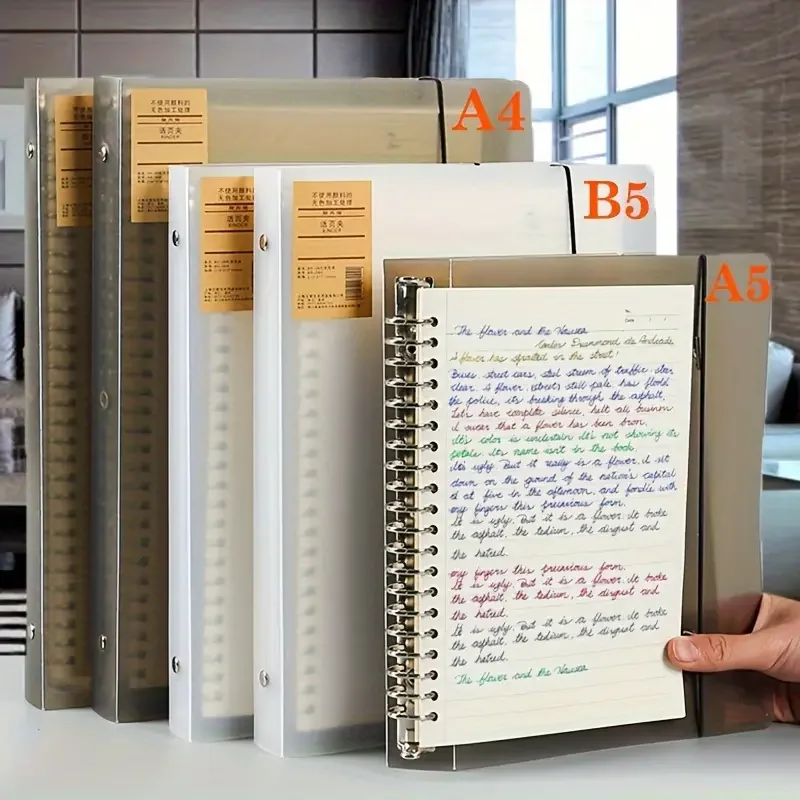 A4
B5
A5
不使用颜料的
无色加工处理
活页夹
BINDER
不使用颜料的
无色加工处理
活页夹
BINDER
No.
Date
The flower and the Nausea
Carlos Drummond de Andrade
A flower has sprouted in the street!
Buses, street cars, steel stream of traffic, steer
clear. A flower, still pale, has
the police, it's breaking through the asphalt.
Let's have complete silence, halt all business
I swear that a flower has been born.
It's color is uncertain It's not showing its
petals. It's name isn't in the book.
It's ugly. But it really is a flower. I sit
down on the ground of the nation's capital
at five in the afternoon, and fondle with
my fingers this precarious form.
It is ugly. But it is a flower. It broke
the asphalt, the tedium, the disgust and
the hatred.
my fingers this precarious form.
It is ugly. But it is a flower. It broke
the asphalt, the tedium, the disgust and
the hatred.
It is ugly. But it is a flower. It broke
the asphalt, the tedium, the disgust and
the hatred.
The flower and the Nausea